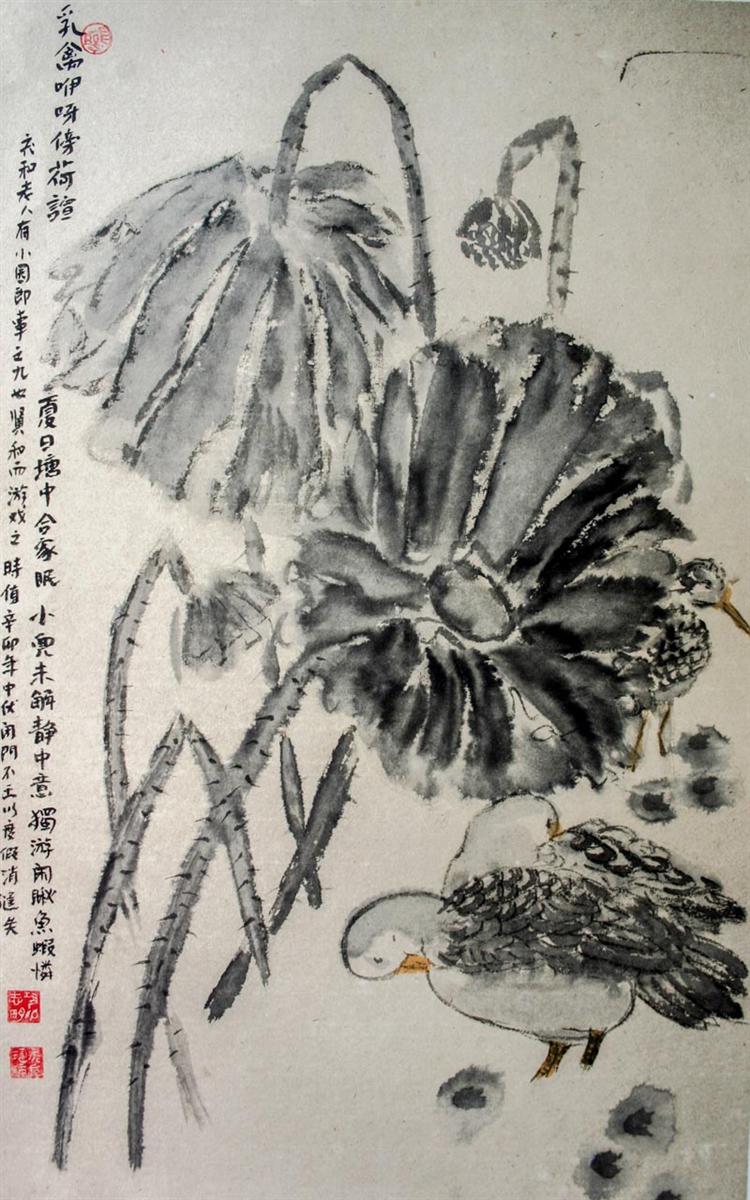 乳禽咿呀傍荷諠
夏日塘中合家眠 小兒未解靜中意獨游闲瞅魚蝦憐
老人有小園即事之九也賢和而游戏之 時值辛卯年中伏闭門不出以度假消遥矣